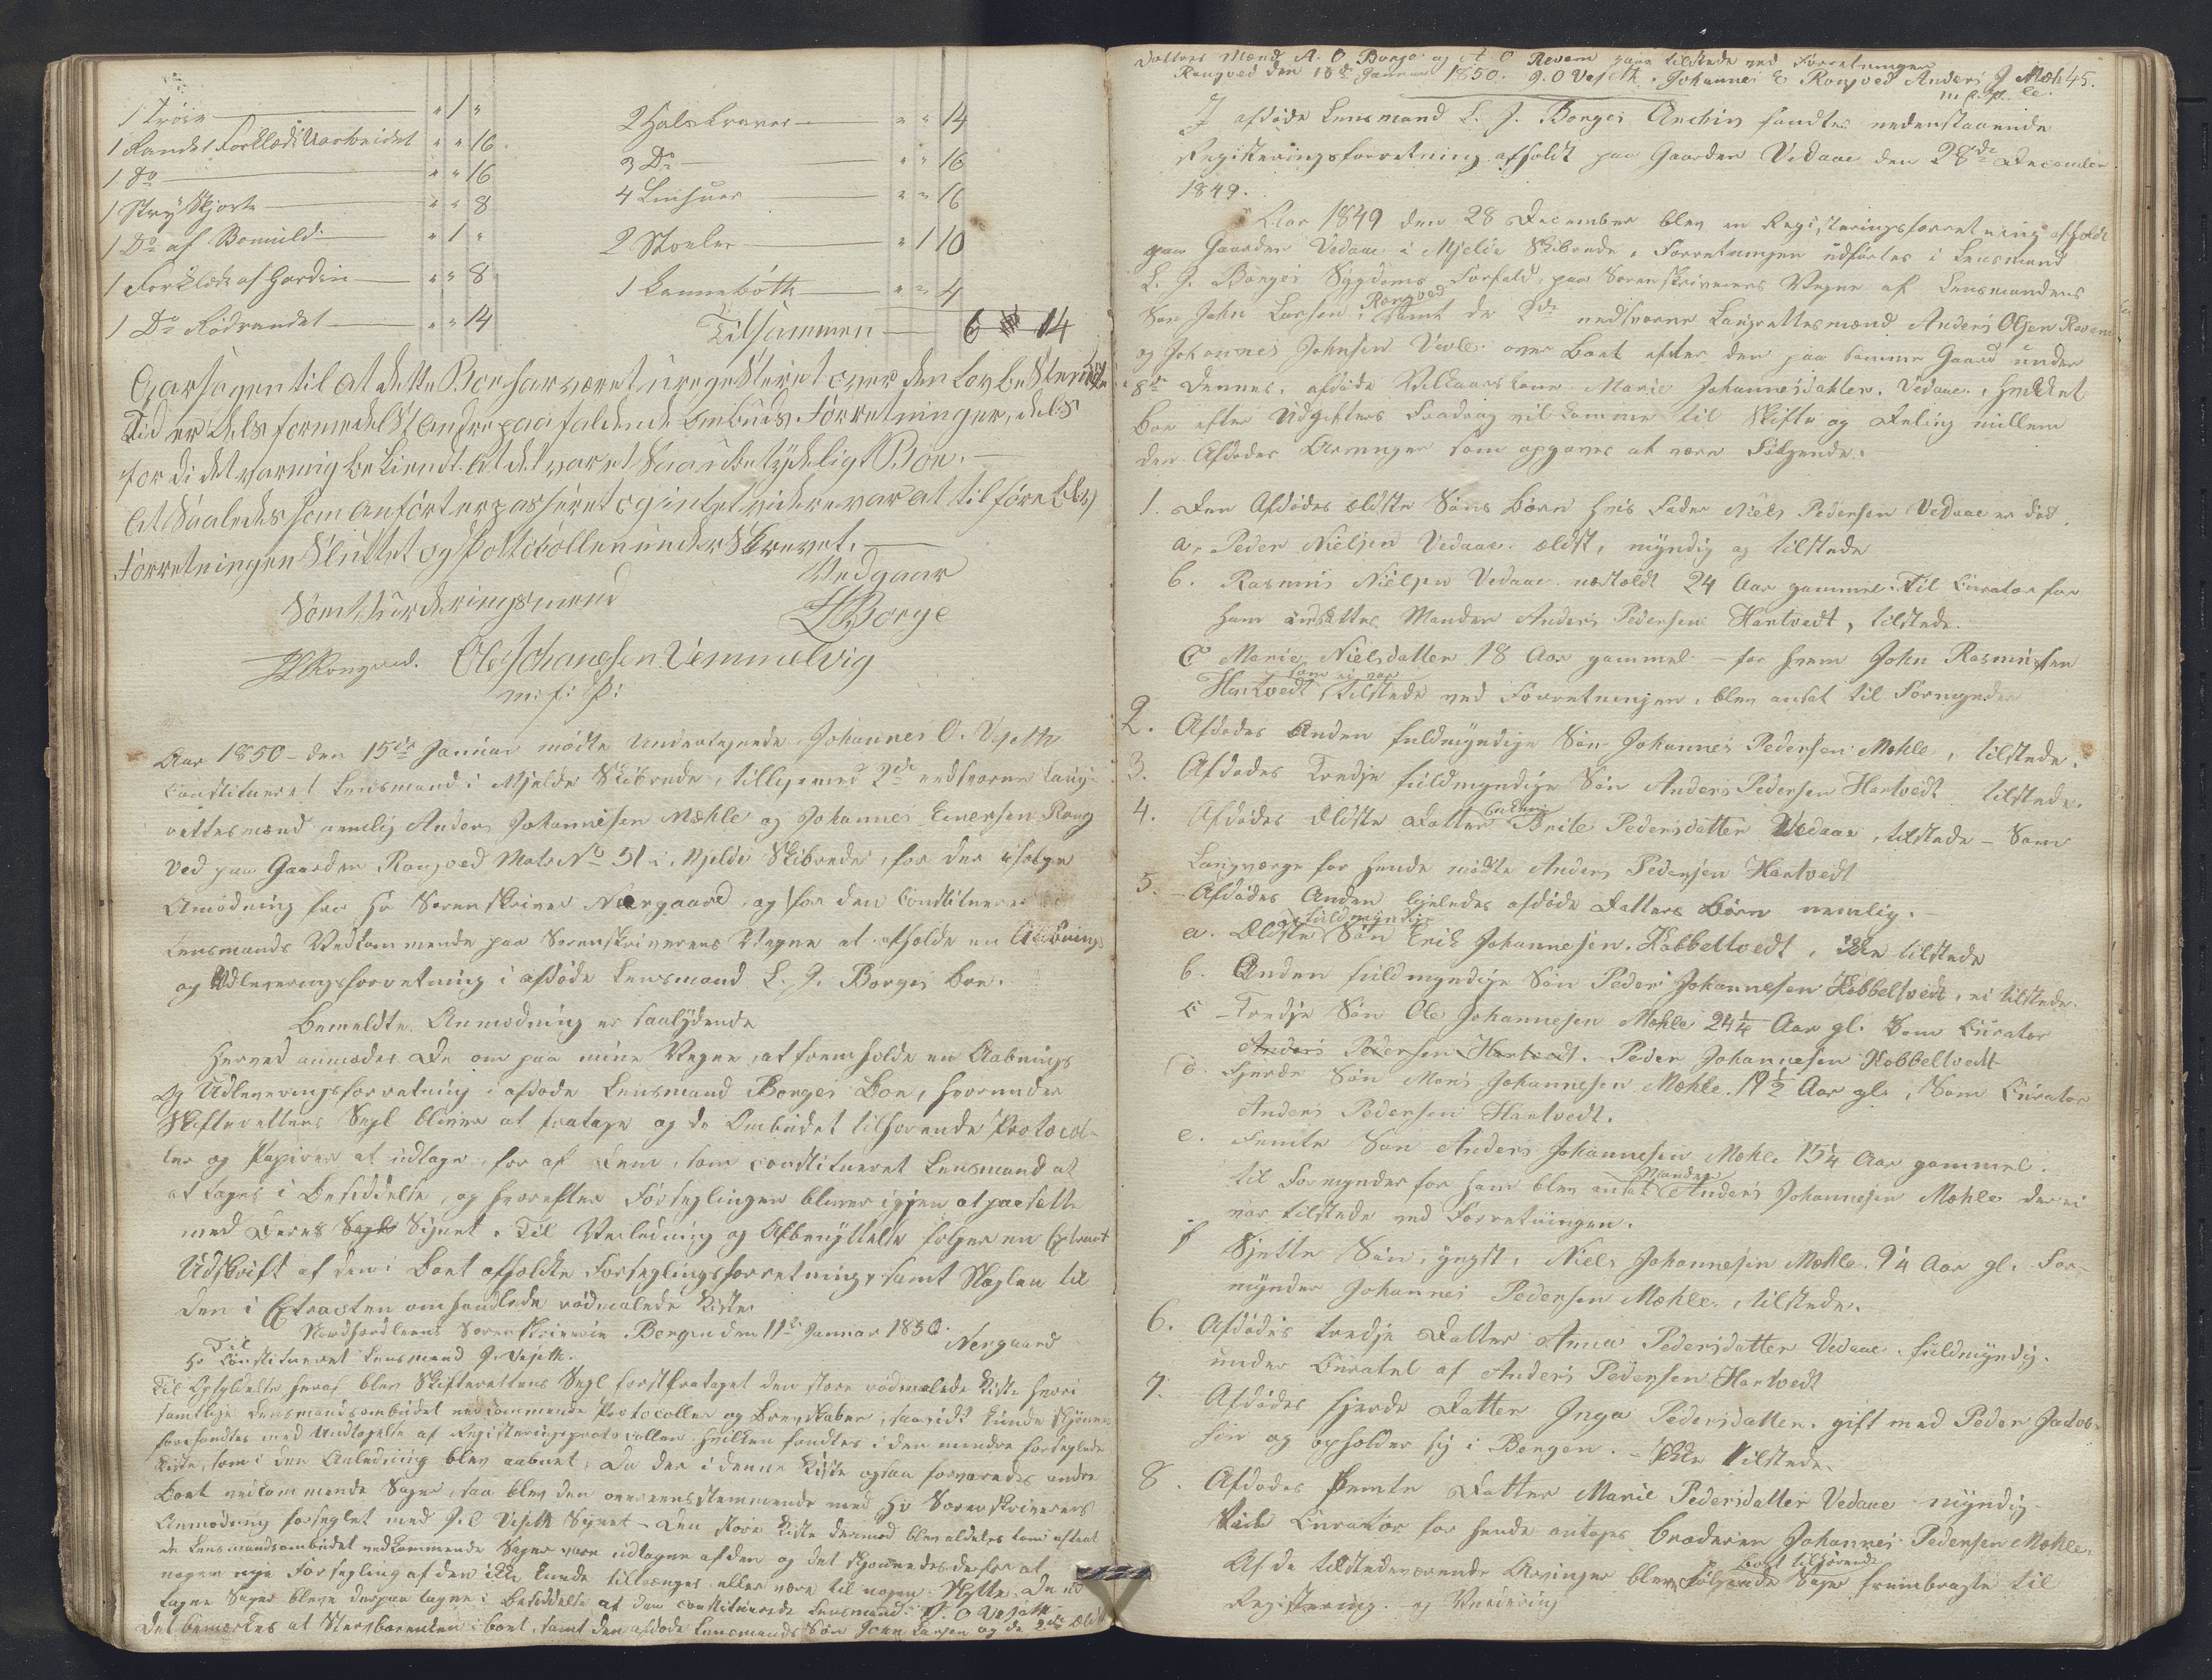 1 Tröie " 1 "
1 Randet Forklæde Uarbeidet " " 16
1 Do " " 16
1 Stry Skjorte " " 8
1 Do af Bomuld " 1 "
1 Forklæde af Gardin " " 8
1 Do Rödrandet " " 14
2 Halskraver " " 14
3 Do " " 16
4 Linhuer " " 16
2 Stoeler " 1 10
1 Kannebötte " " 4
Tilsammen 6 14
Aarsagen til at dette Boe har været uregesteret over den Lovbestemte
Tid er dels formedelst andre paafaldende Ombuds Forretninger, dels
fordi det var mig bekiendt at det var et Saa ubetydeligt Boe.
At Saaledes som anfört er passeret og intet videre var at tilföre blev
Forretningen Sluttet og Protocollen underskrevet.
Vedgaar
Som Vurderingsmænd
LJBorge
Rongved. Ole Johanesen Vemmelvig
m: f: P:
Aar 1850 den 15de Januar mödte Undertegnede Johannes O. Vefeth
Constitueret Lensmand i Mjelde Skibrede, tilligemed 2de edsvorne Laug-
rettesmænd nemlig Anders Johannesen Mæhle og Johannes Einersen Rong
ved paa Gaarden Rongved Matr No 51 i Mjelde Skibrede, for der ifölge
Anmodning fra Hr Sorenskriver Nergaard, og for den Constituerede
Lensmands Vedkommende paa Sorenskriverens Vegne at afholde en Aabnings
og Udleveringsforretning i afdöde Lensmand L. J. Borges Boe.
Bemeldte Anmodning er saalydende
Herved anmodes De om paa mine Vegne, at fremholde en Aabnings
Og Udleveringsforretning i afdöde Lensmand Borges Boe, hvorunder
Skifterettens Segl bliver at fratage og de Ombudet tilhörende Protocol-
ler og Papirer at udtage, for af Dem, som constitueret Lensmand at
at tages i Besiddelse, og hvorefter Forseglingen bliver igjen at paasætte
med Deres Segl Signet. Til Veiledning og Afbenyttelse fölger en Extract
Udskrift af den i Boet afholdte Forseglingsforretning, samt Nöglen til
den i Extracten omhandlede rödmalede Kiste
Nordhordlens Sorenskriverie Bergen den 11te Januar 1850.
Nergaard
Til
Hr Constitueret Lensmand J. Vefeth.
Til Opfyldelse heraf blev Skifterettens Segl först frataget den store rödmalede Kiste hvori
samtlige Lensmandsombudet vedkommende Protocoller og Brevskaber, saavidt kunde skjönnes
forefandtes med Undtagelse af Registeringsprotocollen hvilken fandtes i den mindre forseglede
Kiste, som i den Anledning blev aabnet. Da der i denne Kiste ogsaa forvaredes andre
Boet vedkommende Sager, saa blev den overeensstemmende med Hr Sorenskriverens
Anmodning forseglet med J. O Vefeth Signet. Den store Kiste dermod blev aldeles tom efterat
de Lensmandsombudet vedkommende Sager vare udtagne af den og det skjönnedes derfor at
nogen nye Forsegling af den ikke kunde tiltrænges eller være til nogen Nytte. De ud
tagne Sager bleve derpaa tagne i Besiddelse af den constituerede Lensmand J. O Vefeth
Det bemærkes at Stervboenken i boet, samt den afdöde Lensmands Sön John Larsen og de 2de Ældste
Dattres Mænd A. O Borge og A O Revem vare tilstede ved Forretningen
Rongved den 15de Januar 1850. J. O Vefeth. Johannes E Rongved Anders J Mæhle 45.
m. f. p.
I afdöde Lensmand L. J. Borges Archiv fandtes nedenstaaende
Registeringsforretning afholdt paa Gaarden Vedaae den 28de December
1849.
Aar 1849 den 28 December blev en Registeringsforretning afholdt
paa Gaarden Vedaae i Mjelde Skibrede. Forretningen udförtes i Lensmand
L. J. Borges Sygdoms Forfald paa Sorenskriverens Vegne af Lensmandens
Sön John Larsen Rongved samt de 2de edsvorne Laugrettesmænd Anders Olsen Revem
og Johannes Johnsen Vevle over Boet efter den paa samme Gaard under
8de dennes afdöde Vilkaarskone Marie Johannesdatter Vedaae, hvilket
Boe efter Udgifters Fradrag vil komme til Skifte og Deling mellem
den Afdödes Arvinger som opgaves at være Fölgende.
1. Den Afdödes ældste Söns Börn hvis Fader Niels Pedersen Vedaae er död.
a. Peder Nielsen Vedaae ældst, myndig og tilstede
b. Rasmus Nielsen Vedaae næstældst 24 Aar gammel. Til Curator for
ham ansættes Manden Anders Pedersen Hartvedt, tilstede.
c Marie Nielsdatter 18 Aar gammel - for hvem John Rasmussen
Hartvedt som ei var tilstede ved Forretningen, blev ansat til Formynder
2. Afdödes Anden fuldmyndige Sön Johannes Pedersen Mæhle, tilstede.
3. Afdödes Tredje fuldmyndige Sön Anders Pedersen Hartvedt tilstede.
4. Afdödes Ældste Datter Enken Brite Pedersdatter Vedaae, tilstede - Som
Laugværge for hende mödte Anders Pedersen Hartvedt
5. Afdödes Anden ligeledes afdöde Datters Börn nemlig.
a. Ældste fuldmyndig Sön Erik Johannesen Kobbeltvedt, ikke tilstede
b. Anden fuldmyndige Sön Peder Johannesen Kobbeltvedt, ei tilstede
c Tredje Sön Ole Johannesen Mæhle 24¼ Aar gl. Som Curator
Anders Pedersen Hartvedt. Peder Johannesen Kobbeltvedt
d. Fjerde Sön Mons Johannesen Mæhle 19½ Aar gl., Som Curator
Anders Pedersen Hartvedt.
e. Femte Sön Anders Johannesen Mæhle 15¼ Aar gammel.
til Formynder for ham blev ansat Manden Anders Johannesen Mæhle der ei
var tilstede ved Forretningen.
f Sjette Sön, yngst, Niels Johannesen Mæhle 9¼ Aar gl. For-
mynder Johannes Pedersen Mæhle, tilstede.
6. Afdödes tredje Datter Anna Pedersdatter Vedaae fuldmyndig.
under Curatel af Anders Pedersen Hartvedt
7. Afdödes fjerde Datter Inga Pedersdatter gift med Peder Jacob-
sen og opholder sig i Bergen. - Ikke tilstede.
8. Afdödes femte Datter Marie Pedersdatter Vedaae myndig
Til Curator for hende antoges Broderen Johannes Pedersen Mæhle,
Af de tilstedeværende Arvinger blev fölgende Boet tilhörende Sager frembragte til
Registering og Vurdering